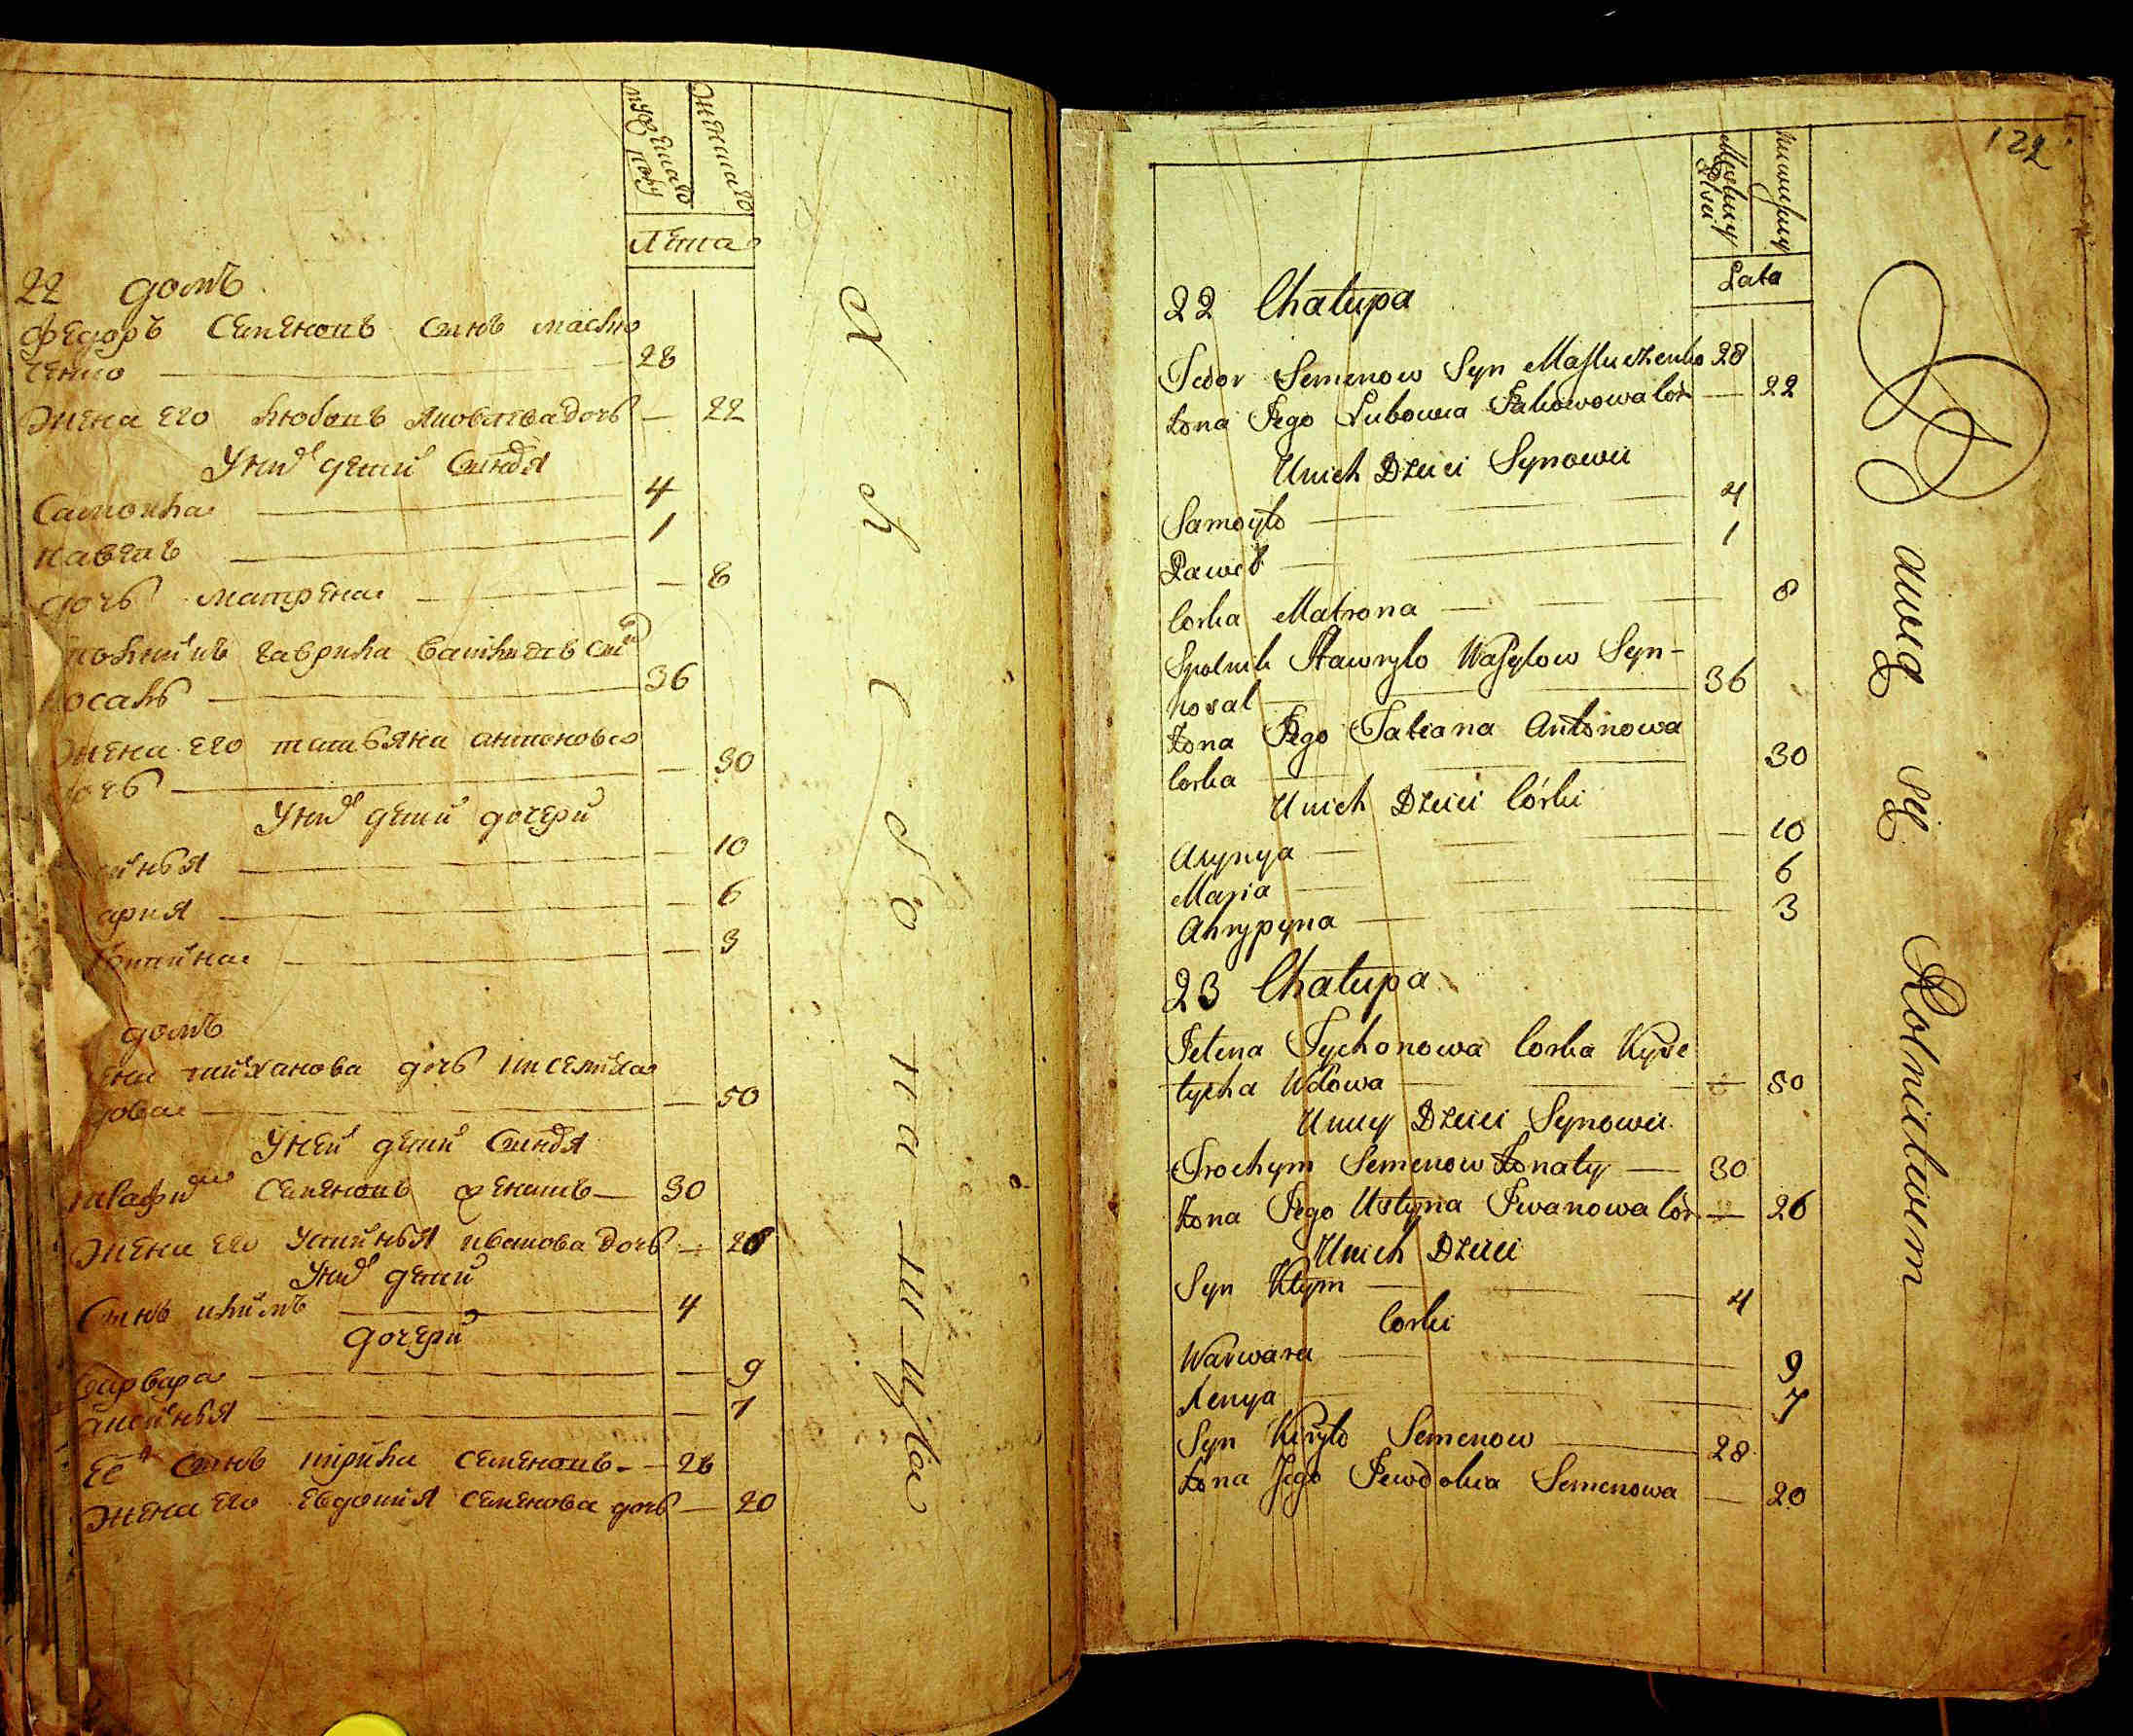 мужеска
полу
женска
Лета
22 домъ
Федоръ Семеновъ сынъ Маслю
ченко — 28
жена его Любовь Яковлева дочь — 22
У них детей сыновя
Самойла — 4
Павелъ — 1
дочь матрена — 8
Гаврила Васильевъ сын
36
жена его татьяна антонова
дочь — 30
У них детей дочери
10
ария — 6
3
домъ
тиханова дочь
дова — 50
У ней детей сыновя
Семеновъ женатъ — 30
жена его Устинья иванова дочь — 26
У них детей
Сынъ Климъ — 4
дочери
Варвара — 9
Аксинья — 7
Ее сынъ Кирила Семеновъ — 28
жена его Евдокия Семенова дочь — 20
122
Męskiey
Płci
Lata
22 Chałupa
Fedor Semenow Syn Masluczenko 28
Żona Jego Lubowia Jakowowa Cór — 22
U nich Dzieci Synowie
Samoyło — 4
Paweł — 1
Corka Matrona — 8
Spolnik Hawryło Wasylow Syn —
Koval — 36
Żona Jego Tatiana Antonowa
Corka — 30
U nich Dzieci Córki
Axynya — 10
Maria — 6
Ahrypyna — 3
23 Chałupa
Jelena Tychonowa Corka Kyse
lycha Wdowa — 50
U niey Dzieci Synowie
Trochym Semenow Żonaty — 30
Żona Jego Ustyna Iwanowa Cór — 26
U nich Dzieci
Syn Kłym — 4
Corki
Warwara — 9
Xenya — 7
Syn Kiryło Semenow — 28
Żona Jego Jewdokia Semenowa — 20
Bawią się Rolnictwem